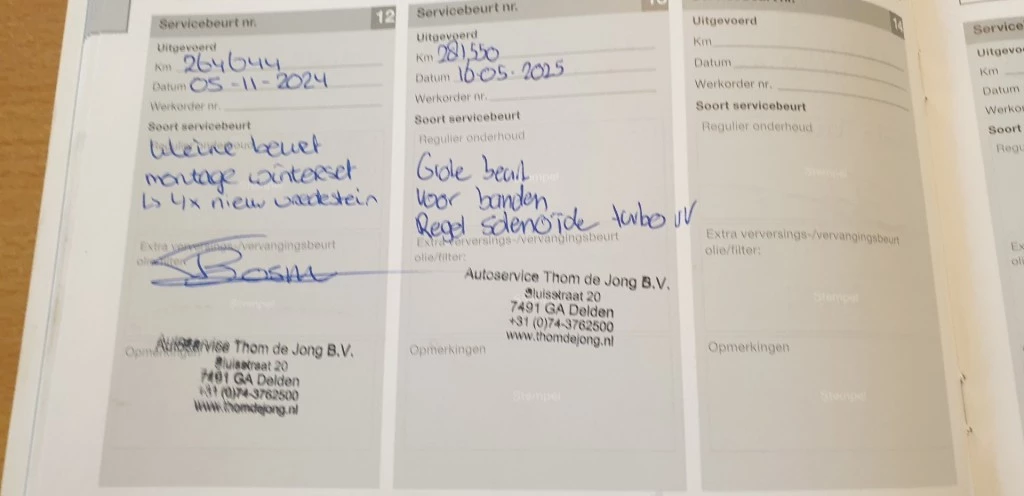 Servicebeurt nr. 12
Uitgevoerd
Km 264644
Datum 05-11-2024
Werkorder nr.
Soort servicebeurt
Kleine beurt
montage winterset
4x nieuw vredestein
Extra verversings-/vervangingsbeurt
olie/filter:
Bosm
Stempel
Opmerkingen
Autoservice Thom de Jong B.V.
Sluisstraat 20
7491 GA Delden
+31 (0)74-3762500
www.thomdejong.nl
Servicebeurt nr. 13
Uitgevoerd
Km 281,550
Datum 16-05-2025
Werkorder nr.
Soort servicebeurt
Regulier onderhoud
Grote beurt
Voor banden
Regel solenoïde turbo VV
Extra verversings-/vervangingsbeurt
olie/filter:
Autoservice Thom de Jong B.V.
Sluisstraat 20
7491 GA Delden
+31 (0)74-3762500
www.thomdejong.nl
Opmerkingen
Stempel
14
Uitgevoerd
Km
Datum
Werkorder nr.
Soort servicebeurt
Regulier onderhoud
Stempel
Extra verversings-/vervangingsbeurt
olie/filter:
Stempel
Opmerkingen
Stempel
Service
Uitgevo
Km
Datum
Werko
Soort
Regu
Ex
oli
Op